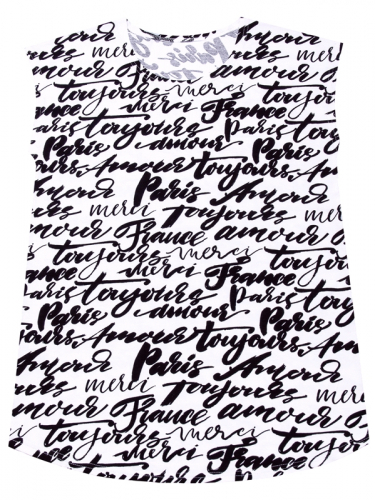 Paris
merci Toujours
amour France amour
toujours merci France
Paris toujours Paris
Amour toujours, Amour
Amour Paris Amour
merci Toujours
amour France amour
toujours merci France
Paris toujours Paris
toujours, Amour amour toujours,
Amour Paris Amour
Toujours merci Toujours
amour France amour
toujours merci France